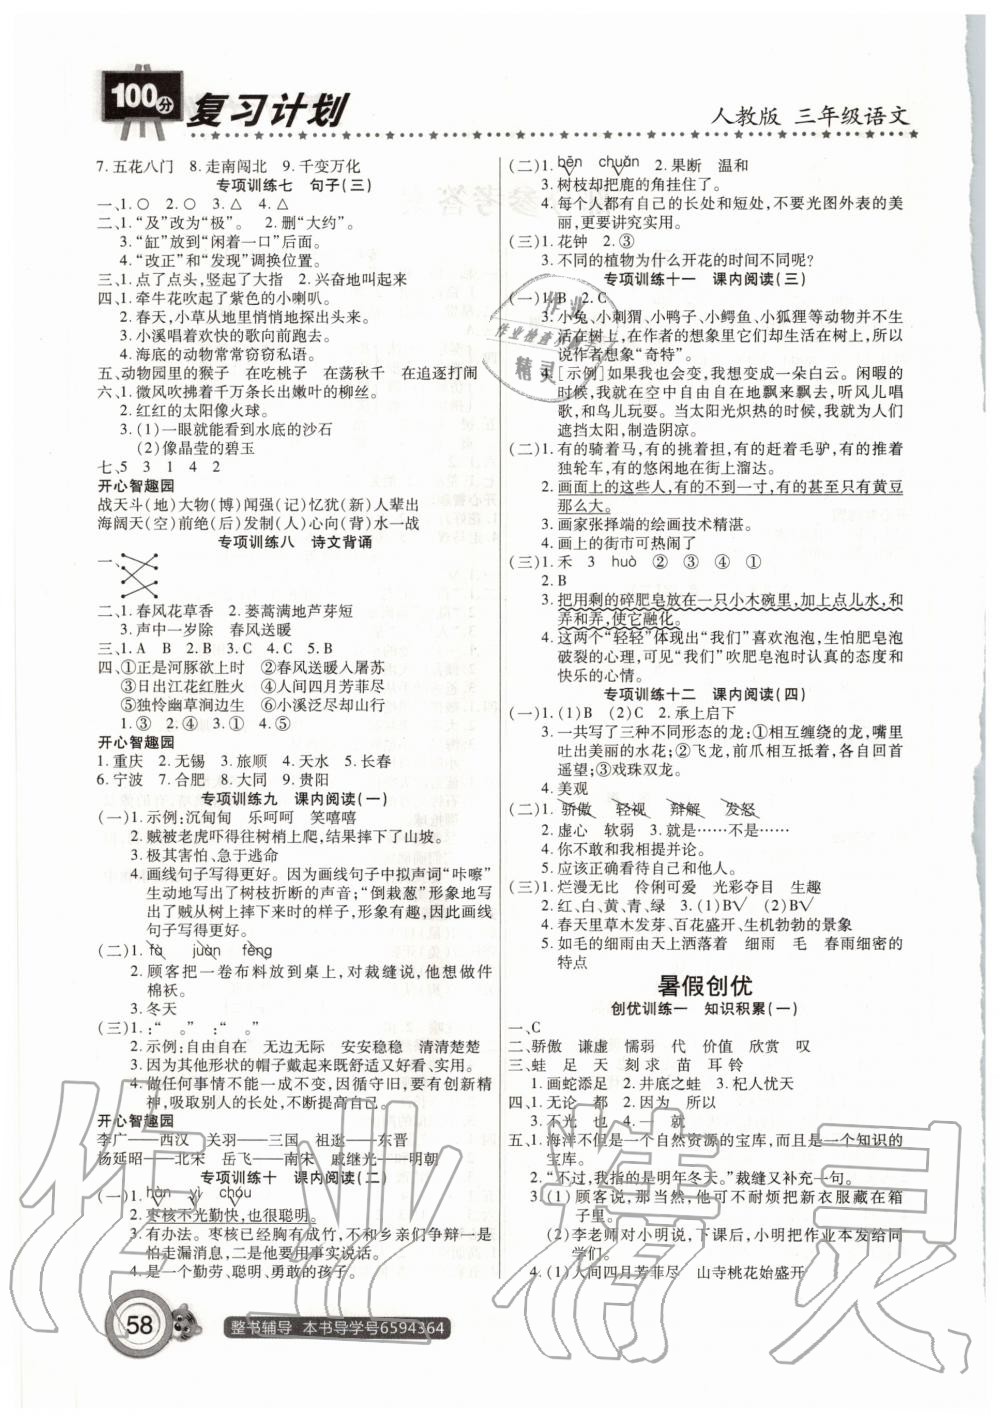 100分
复习计划
人教版 三年级语文
7.五花八门 8.走南闯北 9.千变万化
专项训练七 句子(三)
一、1.△ 2.○ 3.△ 4.△
二、1.“及”改为“极”。 2.删“大约”。
3.“缸”放到“闲着一口”后面。
4.“改正”和“发现”调换位置。
三、1.点了点头,竖起了大指 2.兴奋地叫起来
四、1.牵牛花吹起了紫色的小喇叭。
2.春天,小草从地里悄悄地探出头来。
3.小溪唱着欢快的歌向前跑去。
4.海底的动物常常窃窃私语。
五、动物园里的猴子 在吃桃子 在荡秋千 在追逐打闹
六、1.微风吹拂着千万条长出嫩叶的柳丝。
2.红红的太阳像火球。
3.(1)一眼就能看到水底的沙石
(2)像晶莹的碧玉
七、5 3 1 4 2
开心智趣园
战天斗(地)大物(博)闻强(记)忆犹(新)人辈出
海阔天(空)前绝(后)发制(人)心向(背)水一战
专项训练八 诗文背诵
一、
二、1.春风花草香 2.蒌蒿满地芦芽短
3.声中一岁除 春风送暖
三、1.A B 2.B 3.A 4.C 5.B
四、①正是河豚欲上时 ②春风送暖入屠苏
③日出江花红胜火 ④人间四月芳菲尽
⑤独怜幽草涧边生 ⑥小溪泛尽却山行
1.③ 2.④ 3.① 4.⑤
开心智趣园
1.重庆 2.无锡 3.旅顺 4.天水 5.长春
6.宁波 7.合肥 8.大同 9.贵阳
专项训练九 课内阅读(一)
(一)1.示例:沉甸甸 乐呵呵 笑嘻嘻
2.贼被老虎吓得往树梢上爬,结果摔下了山坡。
3.极其害怕、急于逃命
4.画线句子写得更好。因为画线句子中拟声词“咔嚓”
生动地写出了树枝折断的声音;“倒栽葱”形象地写
出了贼从树上摔下来时的样子,形象有趣,因此画线
句子写得更好。
(二)1.fà juàn fèng
2.顾客把一卷布料放到桌上,对裁缝说,他想做件
棉袄。
3.冬天
(三)1.:“ 。” 。“ 。”
2.示例:自由自在 无边无际 安安稳稳 清清楚楚
3.因为其他形状的帽子戴起来既舒适又好看、实用。
4.做任何事情不能一成不变、因循守旧,要有创新精
神,吸取别人的长处,并付诸实践提高自己。
开心智趣园
李广——西汉 关羽——三国 祖逖——东晋
杨延昭——北宋 岳飞——南宋 戚继光——明朝
专项训练十 课内阅读(二)
(一)1.hàn yì chóu
2.枣核不光勤快,也很聪明。
3.有办法。枣核已经胸有成竹,不和乡亲们争辩一是
怕走漏消息,二是他要用事实说话。
4.是一个勤劳、聪明、勇敢的孩子。
(二)1.bēn chuǎn 2.果断 温和
3.树枝却把鹿的角挂住了。
4.每个人都有自己的长处和短处,不要光图外表的美
丽,更要讲究实用。
(三)1.花钟 2.③
3.不同的植物为什么开花的时间不同呢?
专项训练十一 课内阅读(三)
(一)1.B 2.C
3.小兔、小刺猬、小鸭子、小鳄鱼、小狐狸等动物并不生
活在树上,在作者的想象里它们却生活在树上,所以
说作者想象“奇特”。
4.[示例]如果我也会变,我想变成一朵白云。闲暇的
时候,我就在空中自由自在地飘来飘去,听风儿唱
歌,和鸟儿玩耍。当太阳光炽热的时候,我就为人们
遮挡太阳,制造阴凉。
(二)1.有的骑着马,有的挑着担,有的赶着毛驴,有的推着
独轮车,有的悠闲地在街上溜达。
2.画面上的这些人,有的不到一寸,有的甚至只有黄豆
那么大。
3.画家张择端的绘画技术精湛。
4.画上的街市可热闹了
(三)1.禾 3 huò ② ③ ④ ①
2.B
3.把用剩的碎肥皂放在一只小木碗里,加上点儿水,和
弄和弄,使它融化。
4.这两个“轻轻”体现出“我们”喜欢泡泡,生怕肥皂泡
破裂的心理,可见“我们”吹肥皂泡时认真的态度和
快乐的心情。
专项训练十二 课内阅读(四)
(一)1.(1)B (2)C 2.承上启下
3.一共写了三种不同形态的龙:①相互缠绕的龙,嘴里
吐出美丽的水花;②飞龙,前爪相互抵着,各自回首
遥望;③戏珠双龙。
4.美观
(二)1.骄傲 轻视 辩解 发怒
2.虚心 软弱 3.就是……不是……
4.你不敢和我相提并论。
5.应该正确看待自己和他人。
(三)1.烂漫无比 伶俐可爱 光彩夺目 生趣
2.红、白、黄、青、绿 3.(1)B√ (2)B√
4.春天里草木发芽、百花盛开、生机勃勃的景象
5.如毛的细雨由天上洒落着 细雨 毛 春雨细密的
特点
暑假创优
创优训练一 知识积累(一)
一、C
二、骄傲 谦虚 懦弱 代 价值 欣赏 叹
三、蛙 足 天 刻 求 苗 耳 铃
1.画蛇添足 2.井底之蛙 3.杞人忧天
四、1.无论 都 2.因为 所以
3.不光 也 4.一 就
五、1.海洋不但是一个自然资源的宝库,而且是一个知识的
宝库。
2.“不过,我指的是明年冬天。”裁缝又补充一句。
3.(1)顾客说,那当然,他可不耐烦把新衣服藏在箱
子里。
(2)李老师对小明说,下课后,小明把作业本发给同
学们。
4.(1)人间四月芳菲尽 山寺桃花始盛开
58
整书辅导 本书导学号6594364
作业
作业检查小帮手
精灵
作业精灵